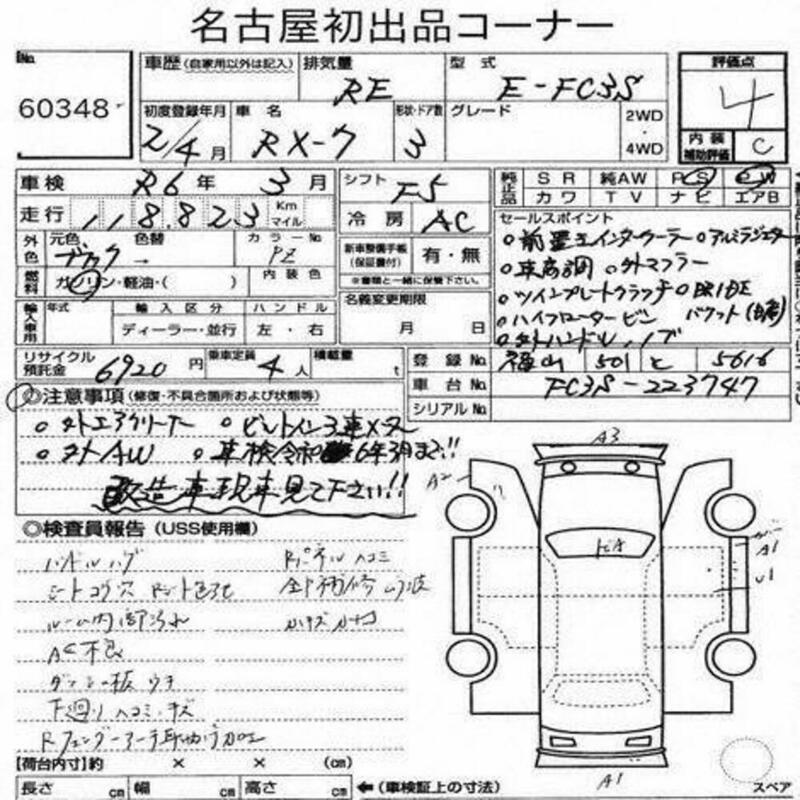 名古屋初出品コーナー
No. 60348
車歴 (自家用以外は記入) 排気量 RE 型式 E-FC3S 評価点 4
初度登録年月 2/4月 車名 RX-7 形状・ドア数 3 グレード 2WD・4WD 内装補助評価 C
車検 R6年 3月 シフト F5 純正品 SR 純AW PS PW
カワ TV ナビ エアB
走行 118.823 Km マイル 冷房 AC
セールスポイント
外色 元色 ブラック 色替 → カラーNo. PZ 新車整備手帳 (保証書付) 有・無
※書類と一緒に保管下さい。
燃料 ガソリン・軽油・( ) 内装色
。前置きインタークーラー 。アルミラジエター
。車高調 。外マフラー
。ツインプレートクラッチ 。BRIDE
。ハイフロータービン バケット
。外ハンドル、ノブ
輸入車用 年式 輸入区分 ハンドル 名義変更期限
ディーラー・並行 左・右 月 日
リサイクル預託金 6920円 乗車定員 4人 積載量 t
登録No. 福山 501 と 5616
車台No. FC3S-223747
シリアルNo.
◎注意事項 (修復・不具合箇所および状態等)
。外エアクリーナー 。ピットイン3連メーター
。外AW 。車検令和6年3月まで!!
改造車現車見て下さい!!
◎検査員報告 (USS使用欄)
ハンドルハゲ Rパネルヘコミ
シートコゲ穴 色あせ 全体補修ムラ波
ルーム内部汚れ カキズカナコ
AC不良
ダッシュ板
下廻りヘコミ・キズ
Rフェンダーアーチ耳加工
A3
A2
A1
A1
スペア
【荷台内寸】約 × × (cm)
長さ cm 幅 cm 高さ cm ←(車検証上の寸法)